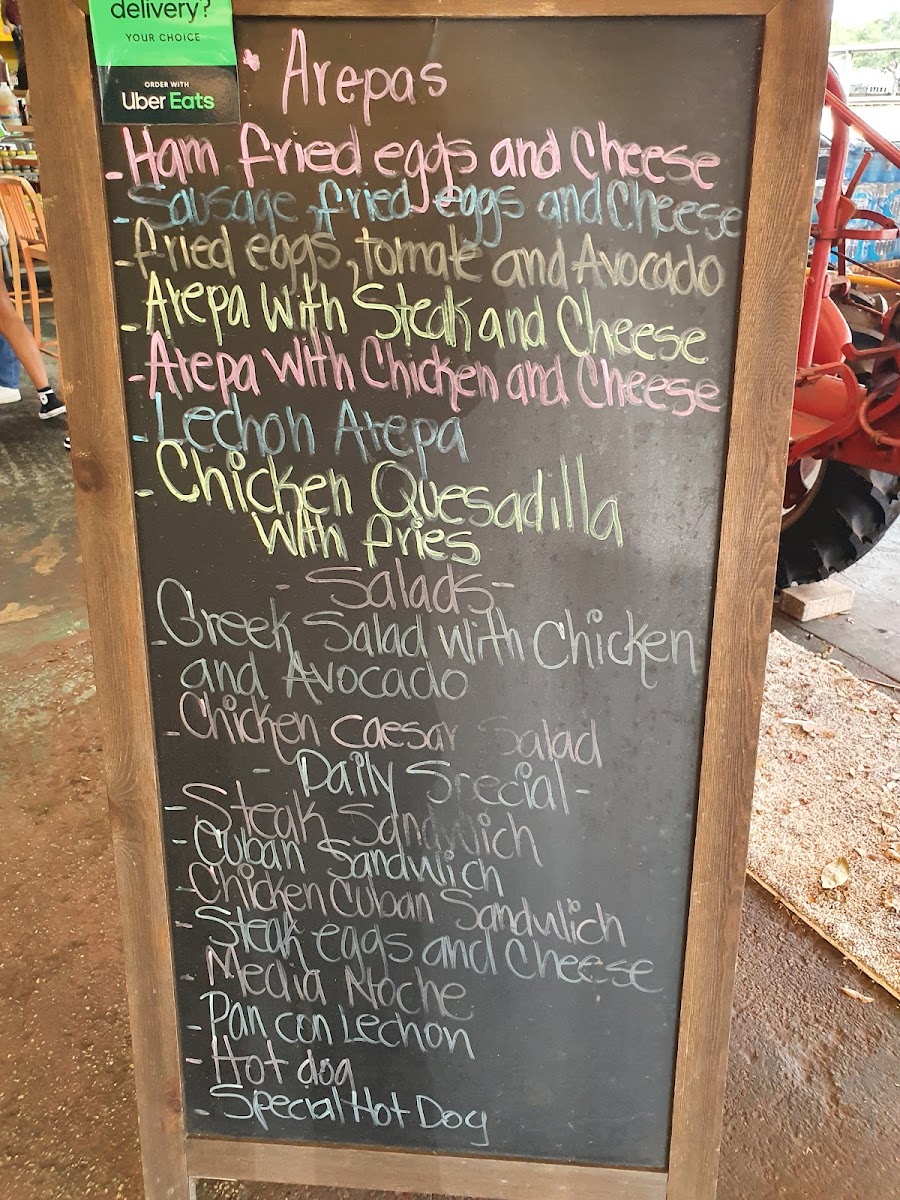 delivery?
YOUR CHOICE
ORDER WITH
Uber Eats
Arepas
- Ham fried eggs and Cheese
- Sausage, fried eggs and Cheese
- fried eggs, tomate and Avocado
- Arepa with Steak and Cheese
- Arepa with Chicken and Cheese
- Lechon Arepa
- Chicken Quesadilla
with fries
- Salads -
- Greek Salad with Chicken
and Avocado
- Chicken caesar Salad
- Daily Special -
- Steak Sandwich
- Cuban Sandwich
- Chicken Cuban Sandwich
- Steak eggs and Cheese
- Media Noche
- Pan con Lechon
- Hot dog
- Special Hot Dog